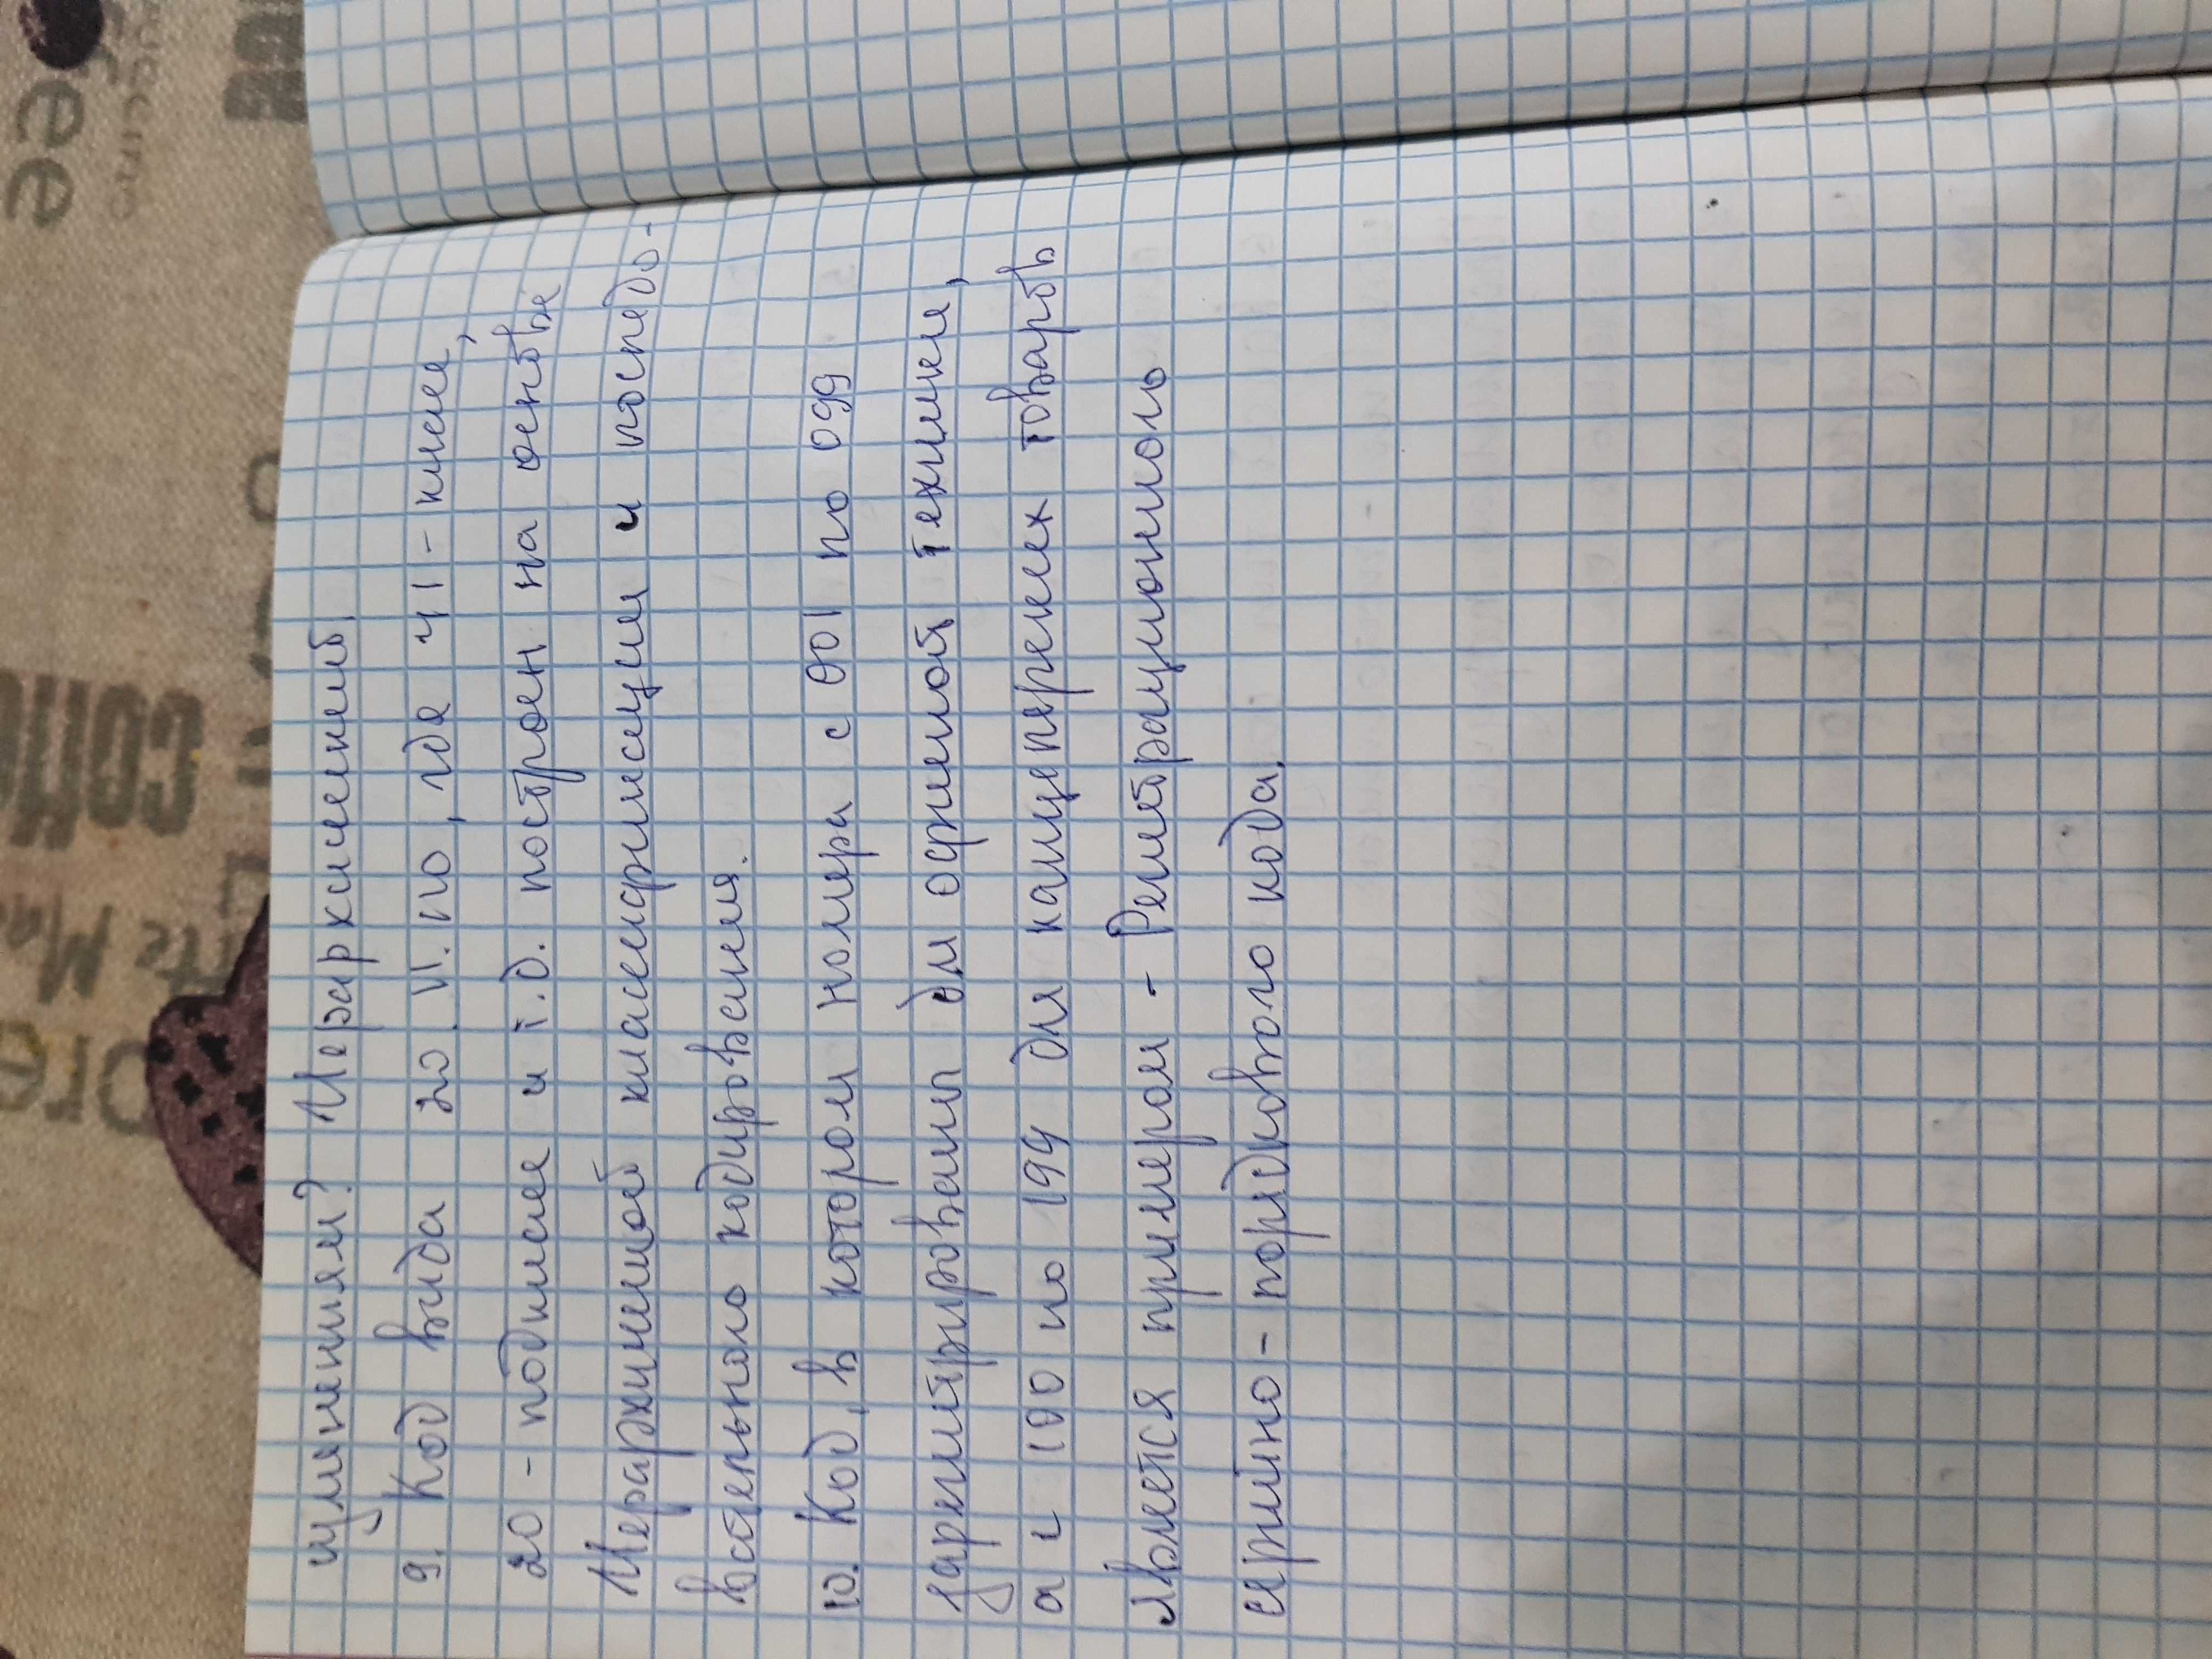 изменениям? Иерархический.
9. Код вида 20.11.110, где 41 - класс,
20 - подкласс и т.д. построен на основе
Иерархической классификации и последо-
вательного кодирования.
10. Код, в котором номера с 001 по 099
зарегистрированы для офисной техники,
а с 100 по 199 для канцелярских товаров
является примером - Регистрационного
серийно - порядкового кода.